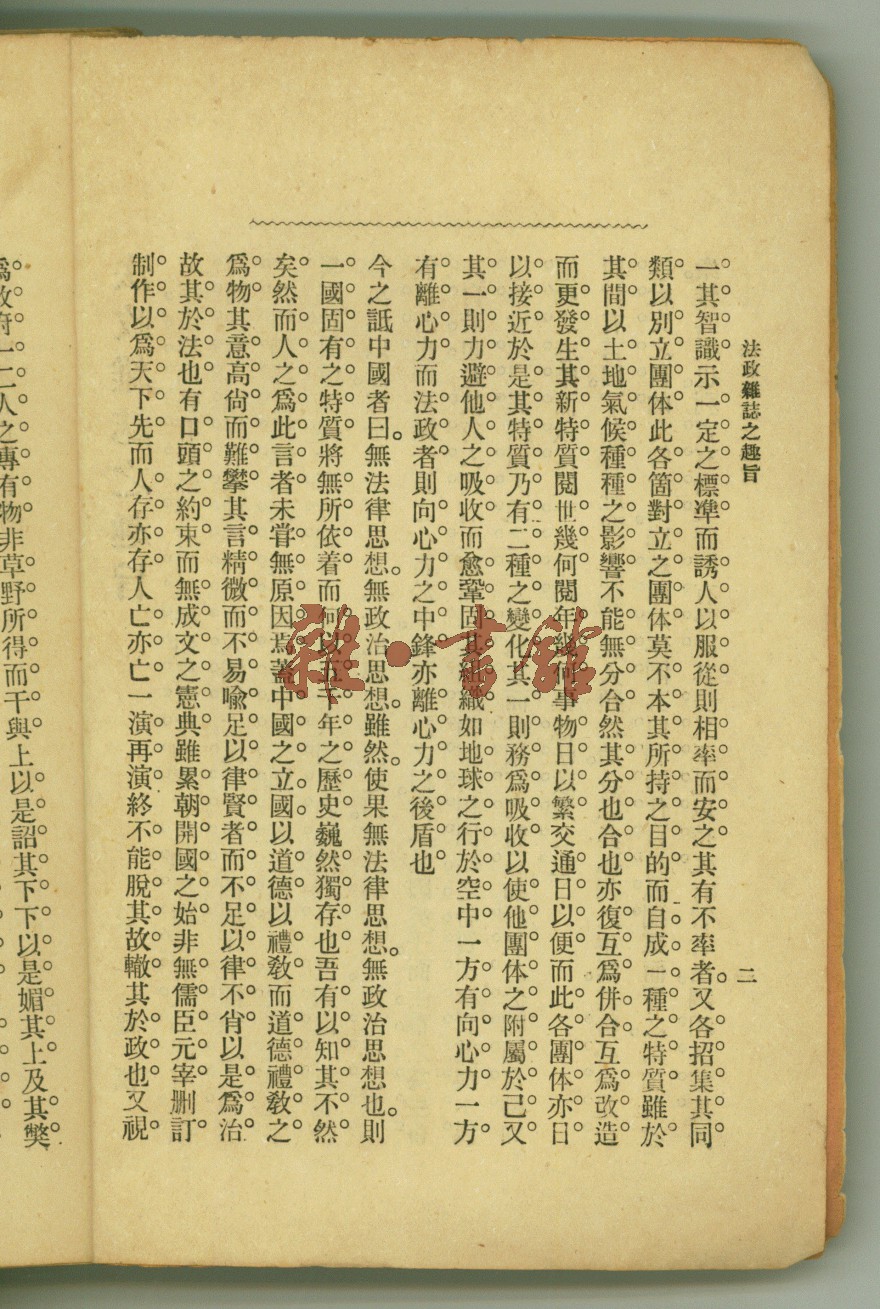 法政雜誌之趣旨
二
一其智識示一定之標準而誘人以服從則相率而安之其有不率者又各招集其同
類以別立團体此各箇對立之團体莫不本其所持之目的而自成一種之特質雖於
其間以土地氣候種種之影響不能無分合然其分也合也亦復互爲併合互爲改造
而更發生其新特質閱世幾何閱年幾何事物日以繁交通日以便而此各團体亦日
以接近於是其特質乃有二種之變化其一則務爲吸收以使他團体之附屬於己又
其一則力避他人之吸收而愈鞏固其組織如地球之行於空中一方有向心力一方
有離心力而法政者則向心力之中鋒亦離心力之後盾也
今之詆中國者曰無法律思想無政治思想雖然使果無法律思想無政治思想也則
一國固有之特質將無所依着而何以五千年之歷史巍然獨存也吾有以知其不然
矣然而人之爲此言者未甞無原因焉蓋中國之立國以道德以禮敎而道德禮敎之
爲物其意高尙而難攀其言精微而不易喩足以律賢者而不足以律不肖以是爲治
故其於法也有口頭之約束而無成文之憲典雖累朝開國之始非無儒臣元宰删訂
制作以爲天下先而人存亦存人亡亦亡一演再演終不能脫其故轍其於政也又視
爲政府一二人之專有物非草野所得而干與上以是詔其下下以是媚其上及其獘
雜·書館